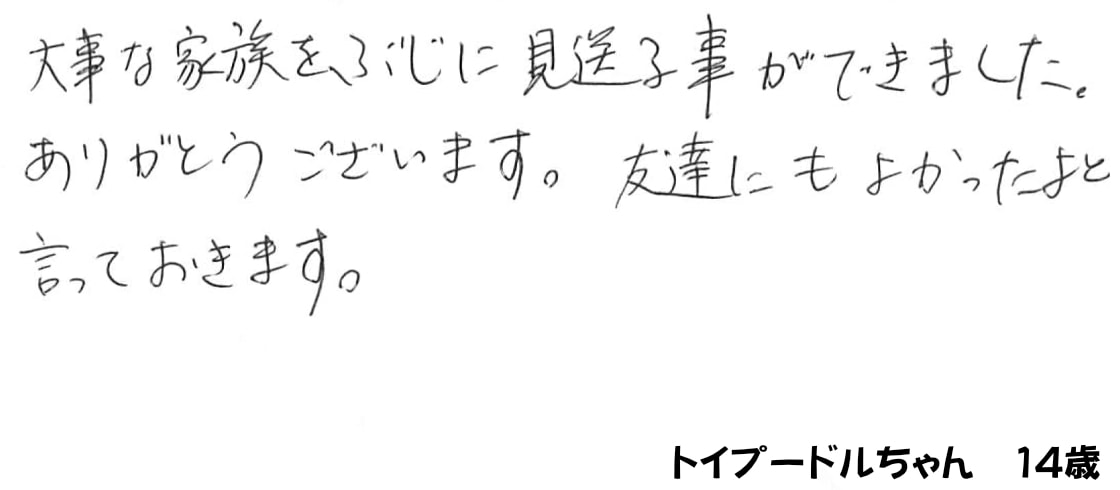 大事な家族をぶじに見送る事ができました。
ありがとうございます。友達にもよかったよと
言っておきます。
トイプードルちゃん 14歳